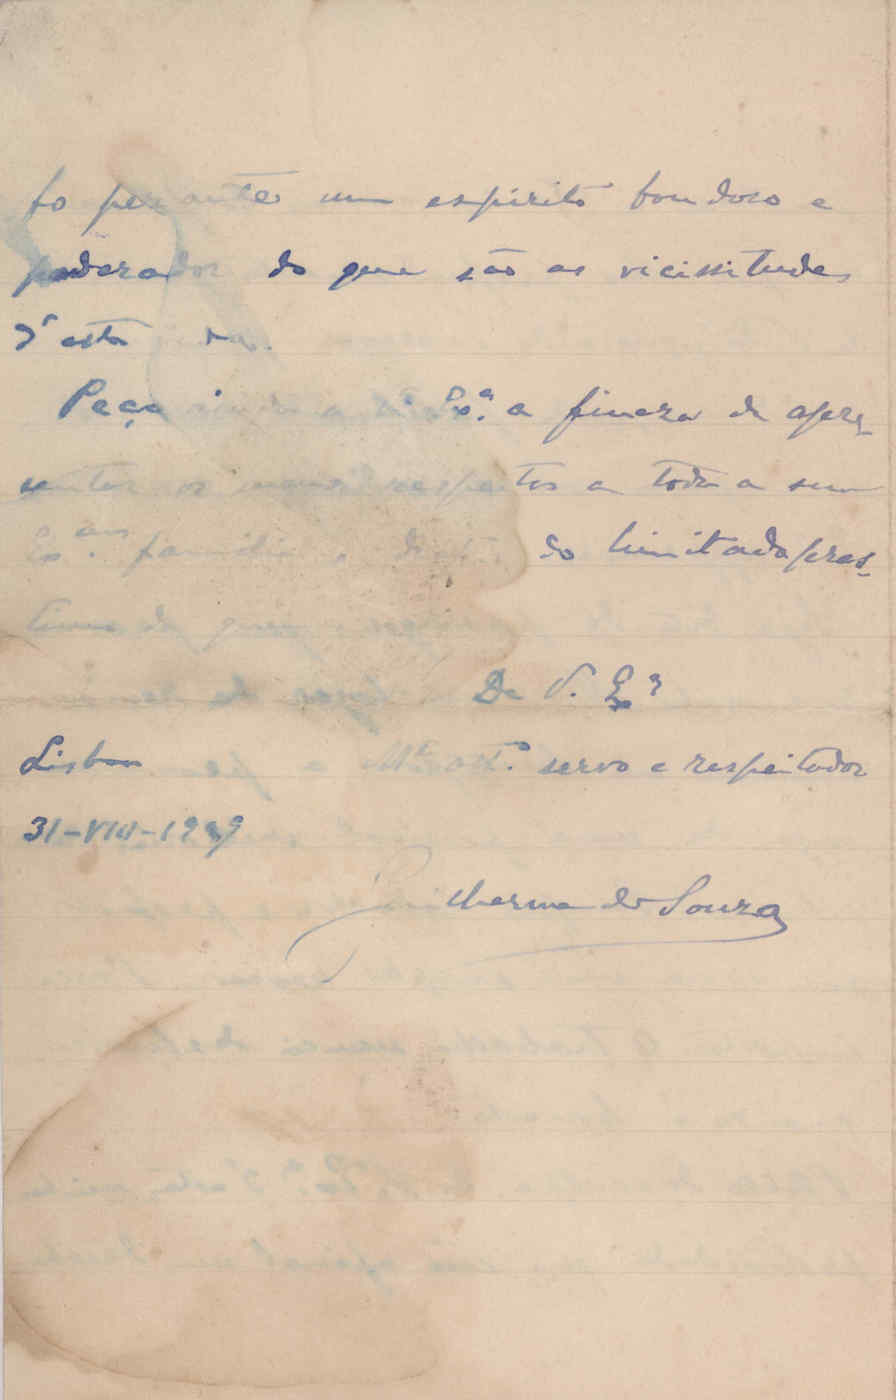 fo perante um espirito bondoso e
ponderador do que são as vicissitudes
d'esta vida.
Peço ainda a V. Exª. a fineza de apre-
sentar os meus respeitos a toda a sua
Ex.ma familia e do limitado pres-
timo de quem
De V. Exª
Lisboa Mto attº. servo e respeitador
31-VIII-1929
Guilherme de Souza